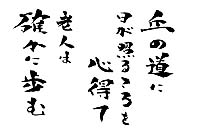 丘の道に
日が照るころを
心得て
老人は
確かに歩む